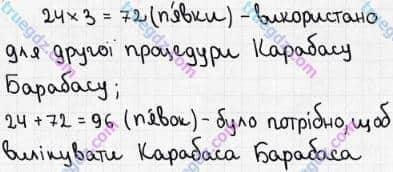 24 × 3 = 72 (п'явки) - використано
для другої процедури Карабасу
Барабасу;
24 + 72 = 96 (п'явок) - було потрібно, щоб
вилікувати Карабаса Барабаса